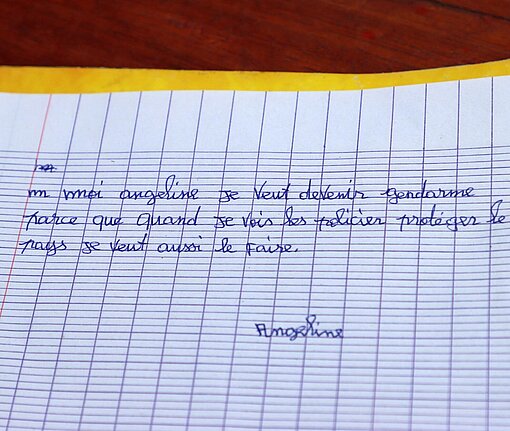 m moi angeline je veut devenir gendarme
parce que quand je vois les policier protéger le
pays je veut aussi le faire.
Angeline